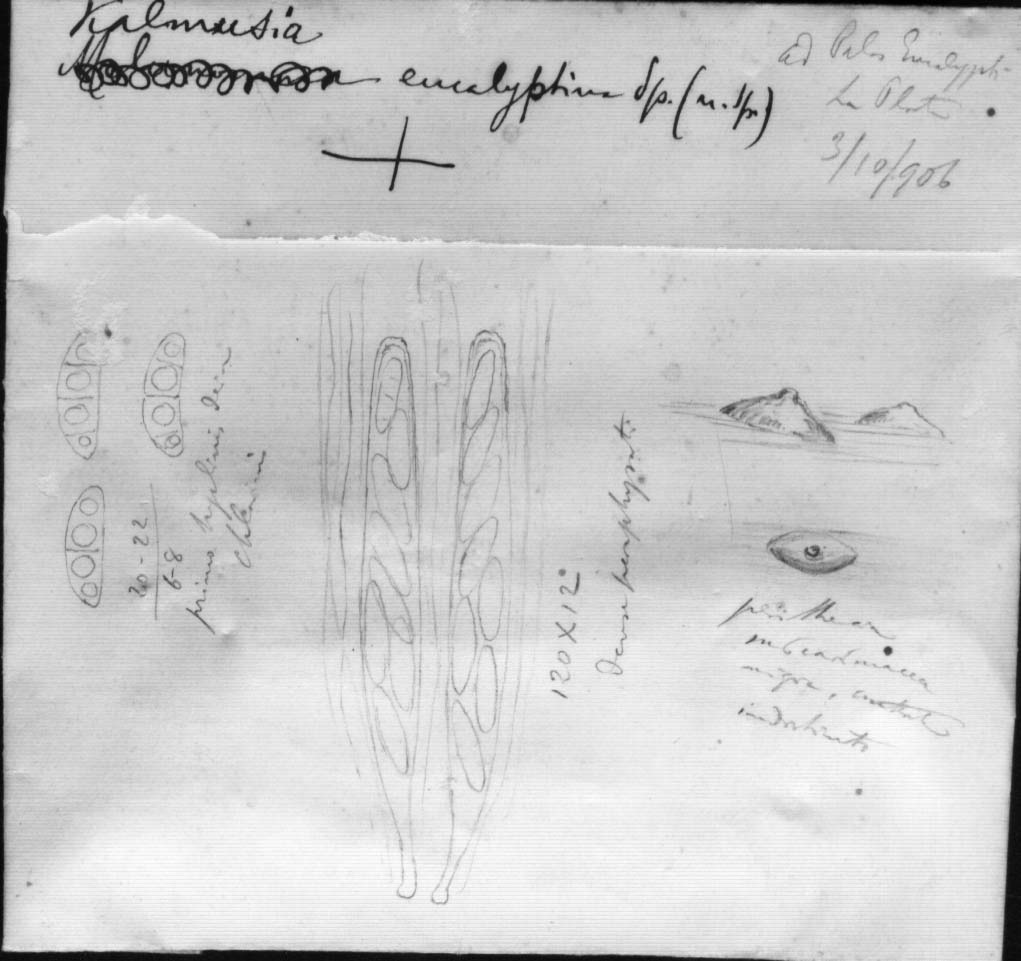 Kalmusia
eucalyptina Sp. (n. sp.)
ad Palos Eucalypti
La Plata
3/10/906
20-22
6-8
primo hyalinis, dein
chlorinis
120 X 12
dense paraphysati
perithecia
subcoriacea
nigra,
indistincto